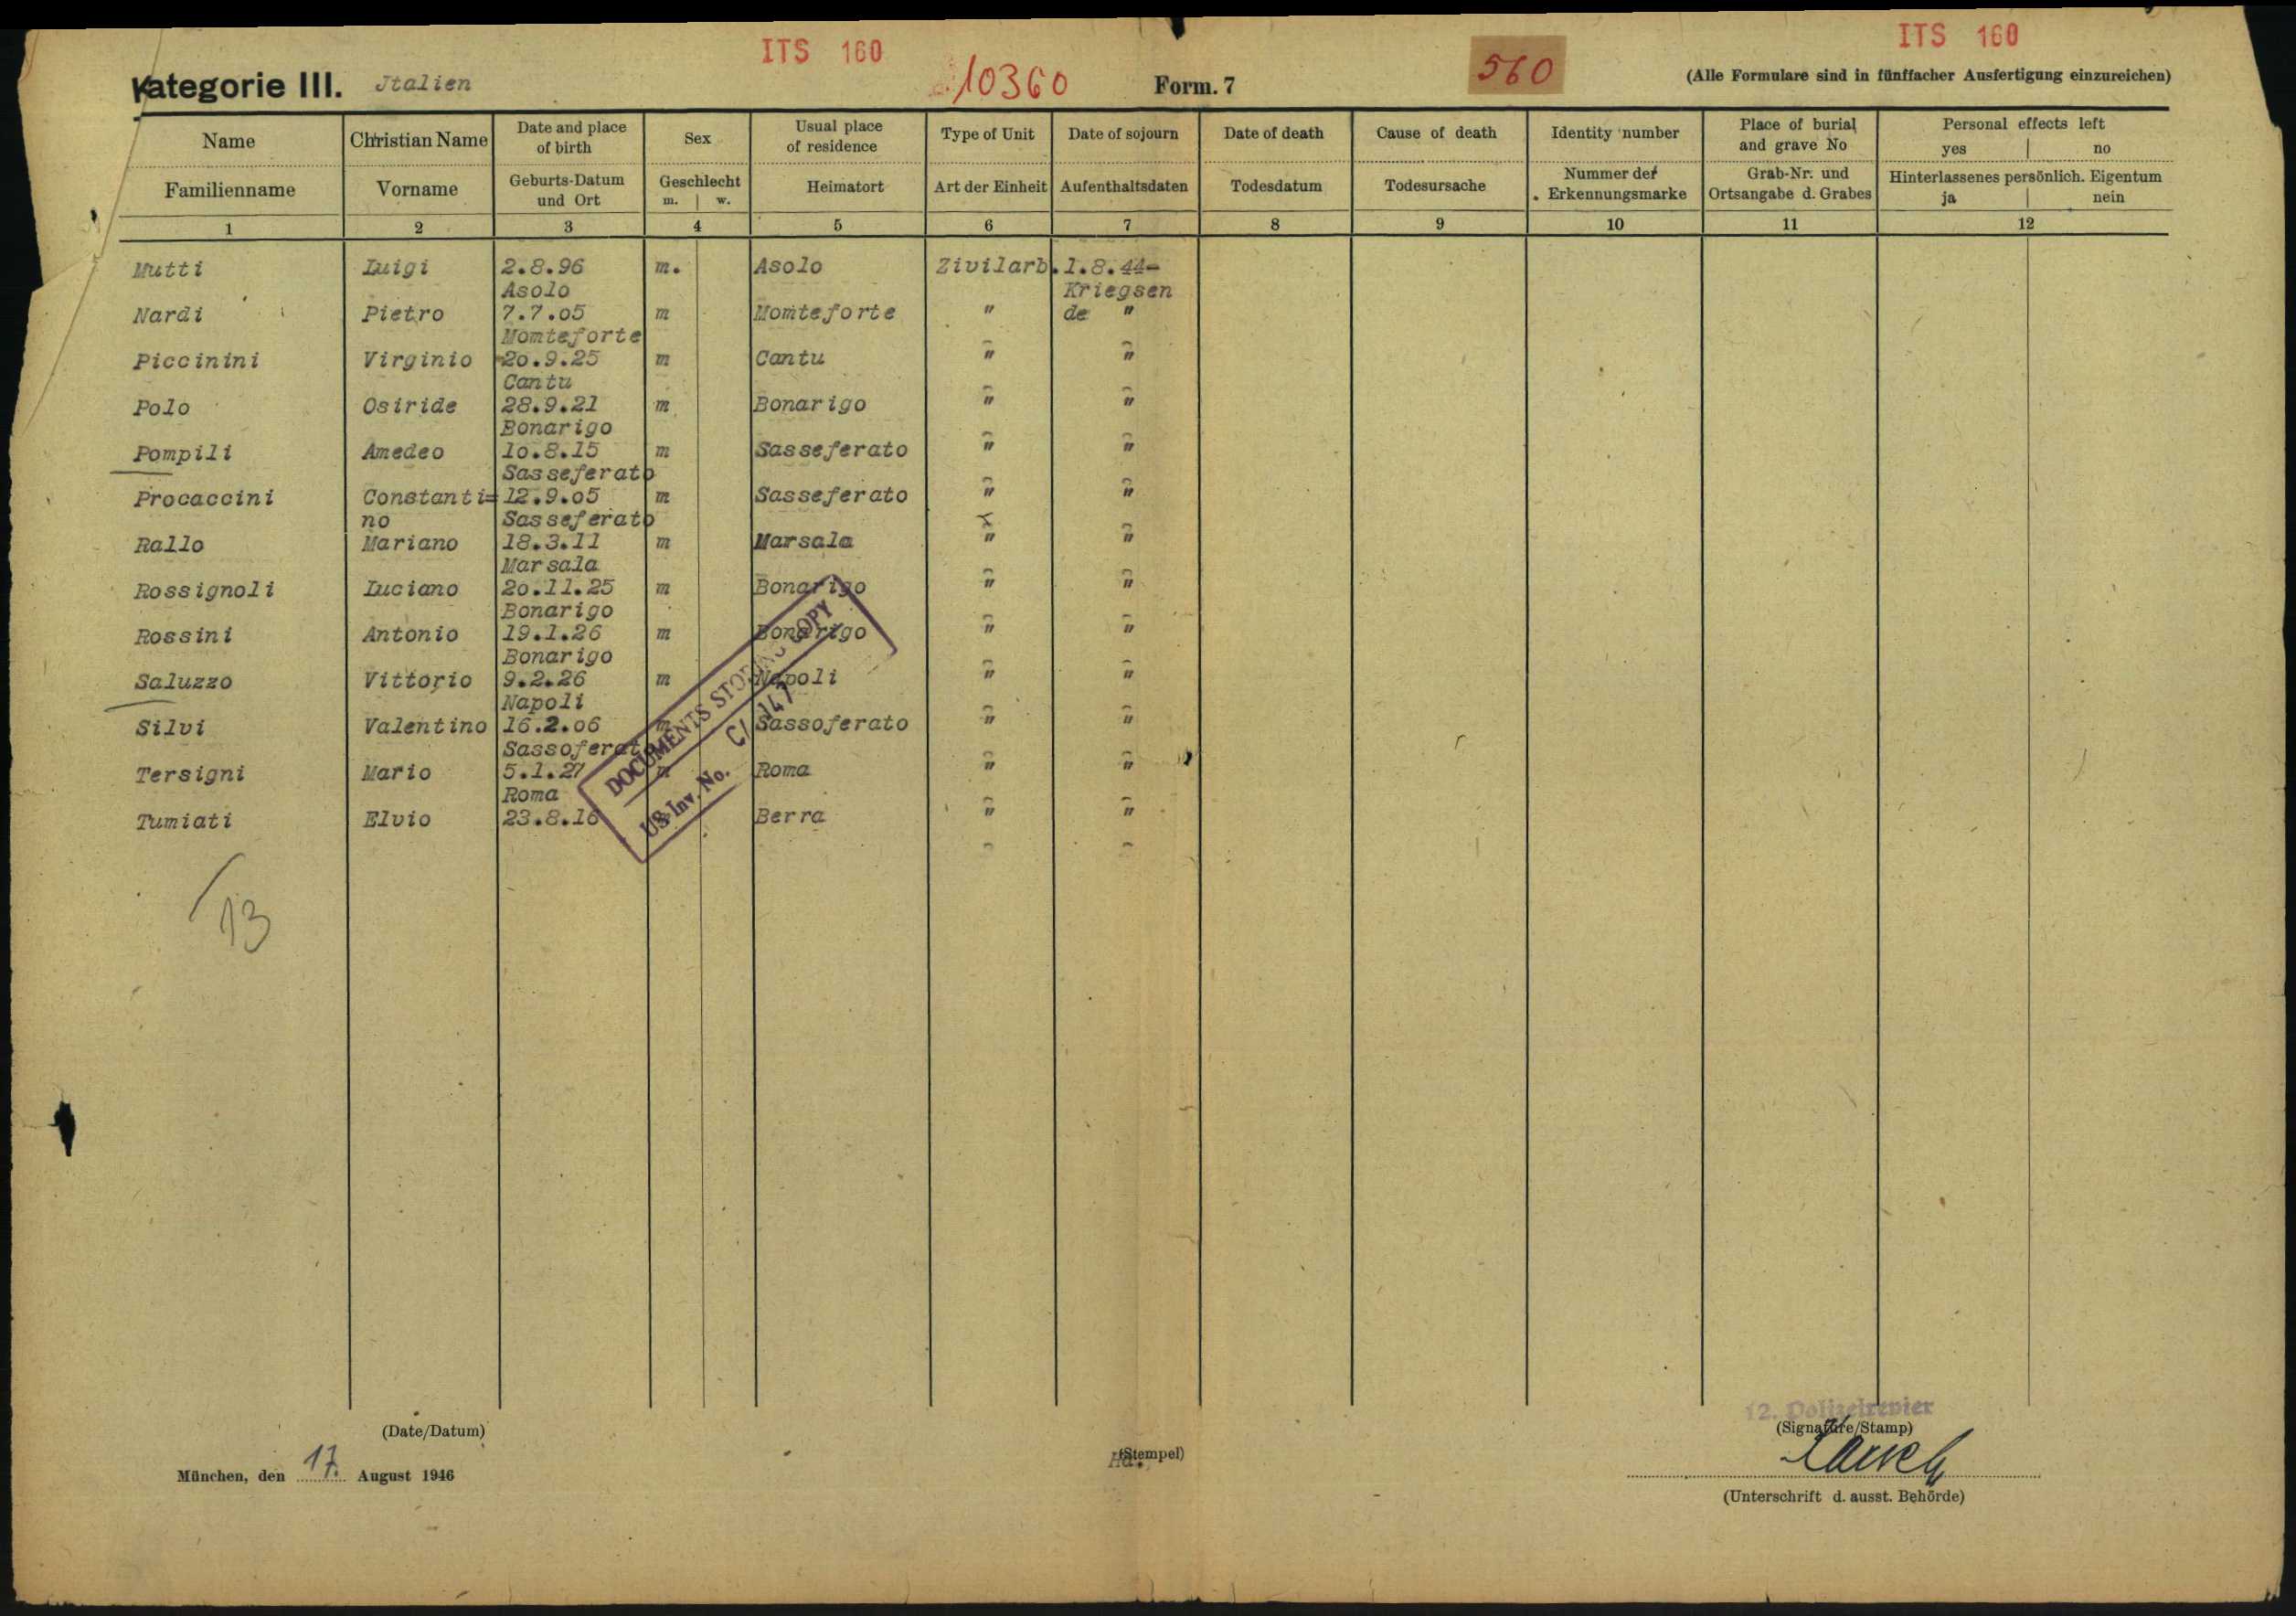 ITS 160
ITS 160
Kategorie III. Jtalien
10360
Form. 7
560
(Alle Formulare sind in fünffacher Ausfertigung einzureichen)
Name Christian Name Date and place of birth Sex Usual place of residence Type of Unit Date of sojourn Date of death Cause of death Identity number Place of burial and grave No Personal effects left yes no
Familienname Vorname Geburts-Datum und Ort Geschlecht m. w. Heimatort Art der Einheit Aufenthaltsdaten Todesdatum Todesursache Nummer der Erkennungsmarke Grab-Nr. und Ortsangabe d. Grabes Hinterlassenes persönlich. Eigentum ja nein
1 2 3 4 5 6 7 8 9 10 11 12
Mutti Luigi 2.8.96 m. Asolo Zivilarb. 1.8.44-
Asolo Kriegsen
Nardi Pietro 7.7.05 m Momteforte " de "
Momteforte
Piccinini Virginio 20.9.25 m Cantu " "
Cantu
Polo Osiride 28.9.21 m Bonarigo " "
Bonarigo
Pompili Amedeo 10.8.15 m Sasseferato " "
Sasseferato
Procaccini Constanti= 12.9.05 m Sasseferato " "
no Sasseferato
Rallo Mariano 18.3.11 m Marsala " "
Marsala
Rossignoli Luciano 20.11.25 m Bonarigo " "
Bonarigo
Rossini Antonio 19.1.26 m Bonarigo " "
Bonarigo
Saluzzo Vittorio 9.2.26 m Napoli " "
Napoli
Silvi Valentino 16.2.06 m Sassoferato " "
Sassoferat
Tersigni Mario 5.1.27 m Roma " "
Roma
Tumiati Elvio 23.8.16 Berra " "
DOCUMENTS STORING COPY
US-Inv. No. C/147
13
(Date/Datum)
München, den 17. August 1946
(Stempel)
12. Polizeirevier
(Signature/Stamp)
(Unterschrift d. ausst. Behörde)